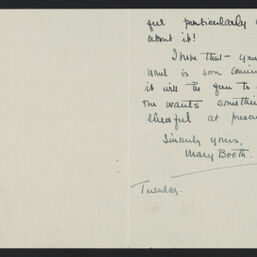 ful particularly
about it!
I hope that - your
novel is soon coming
it will be fun to
one wants something
cheerful at present
Sincerely yours,
Mary Booth.
Tuesday.